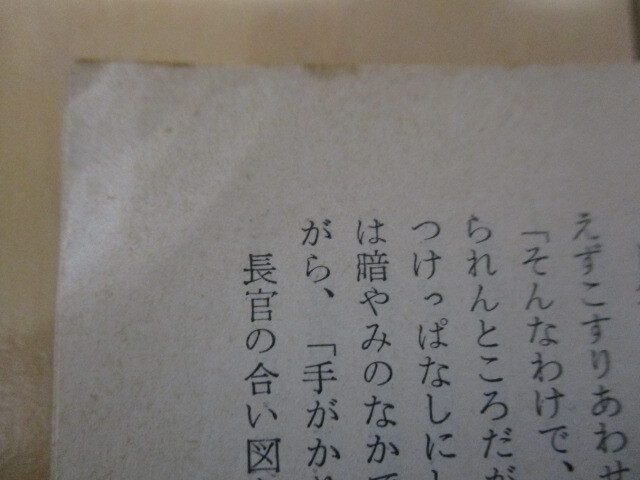 えずこすりあわせ
「そんなわけで、
られんところだが
つけっぱなしにし
は暗やみのなかで
がら、「手がかり
長官の合い図